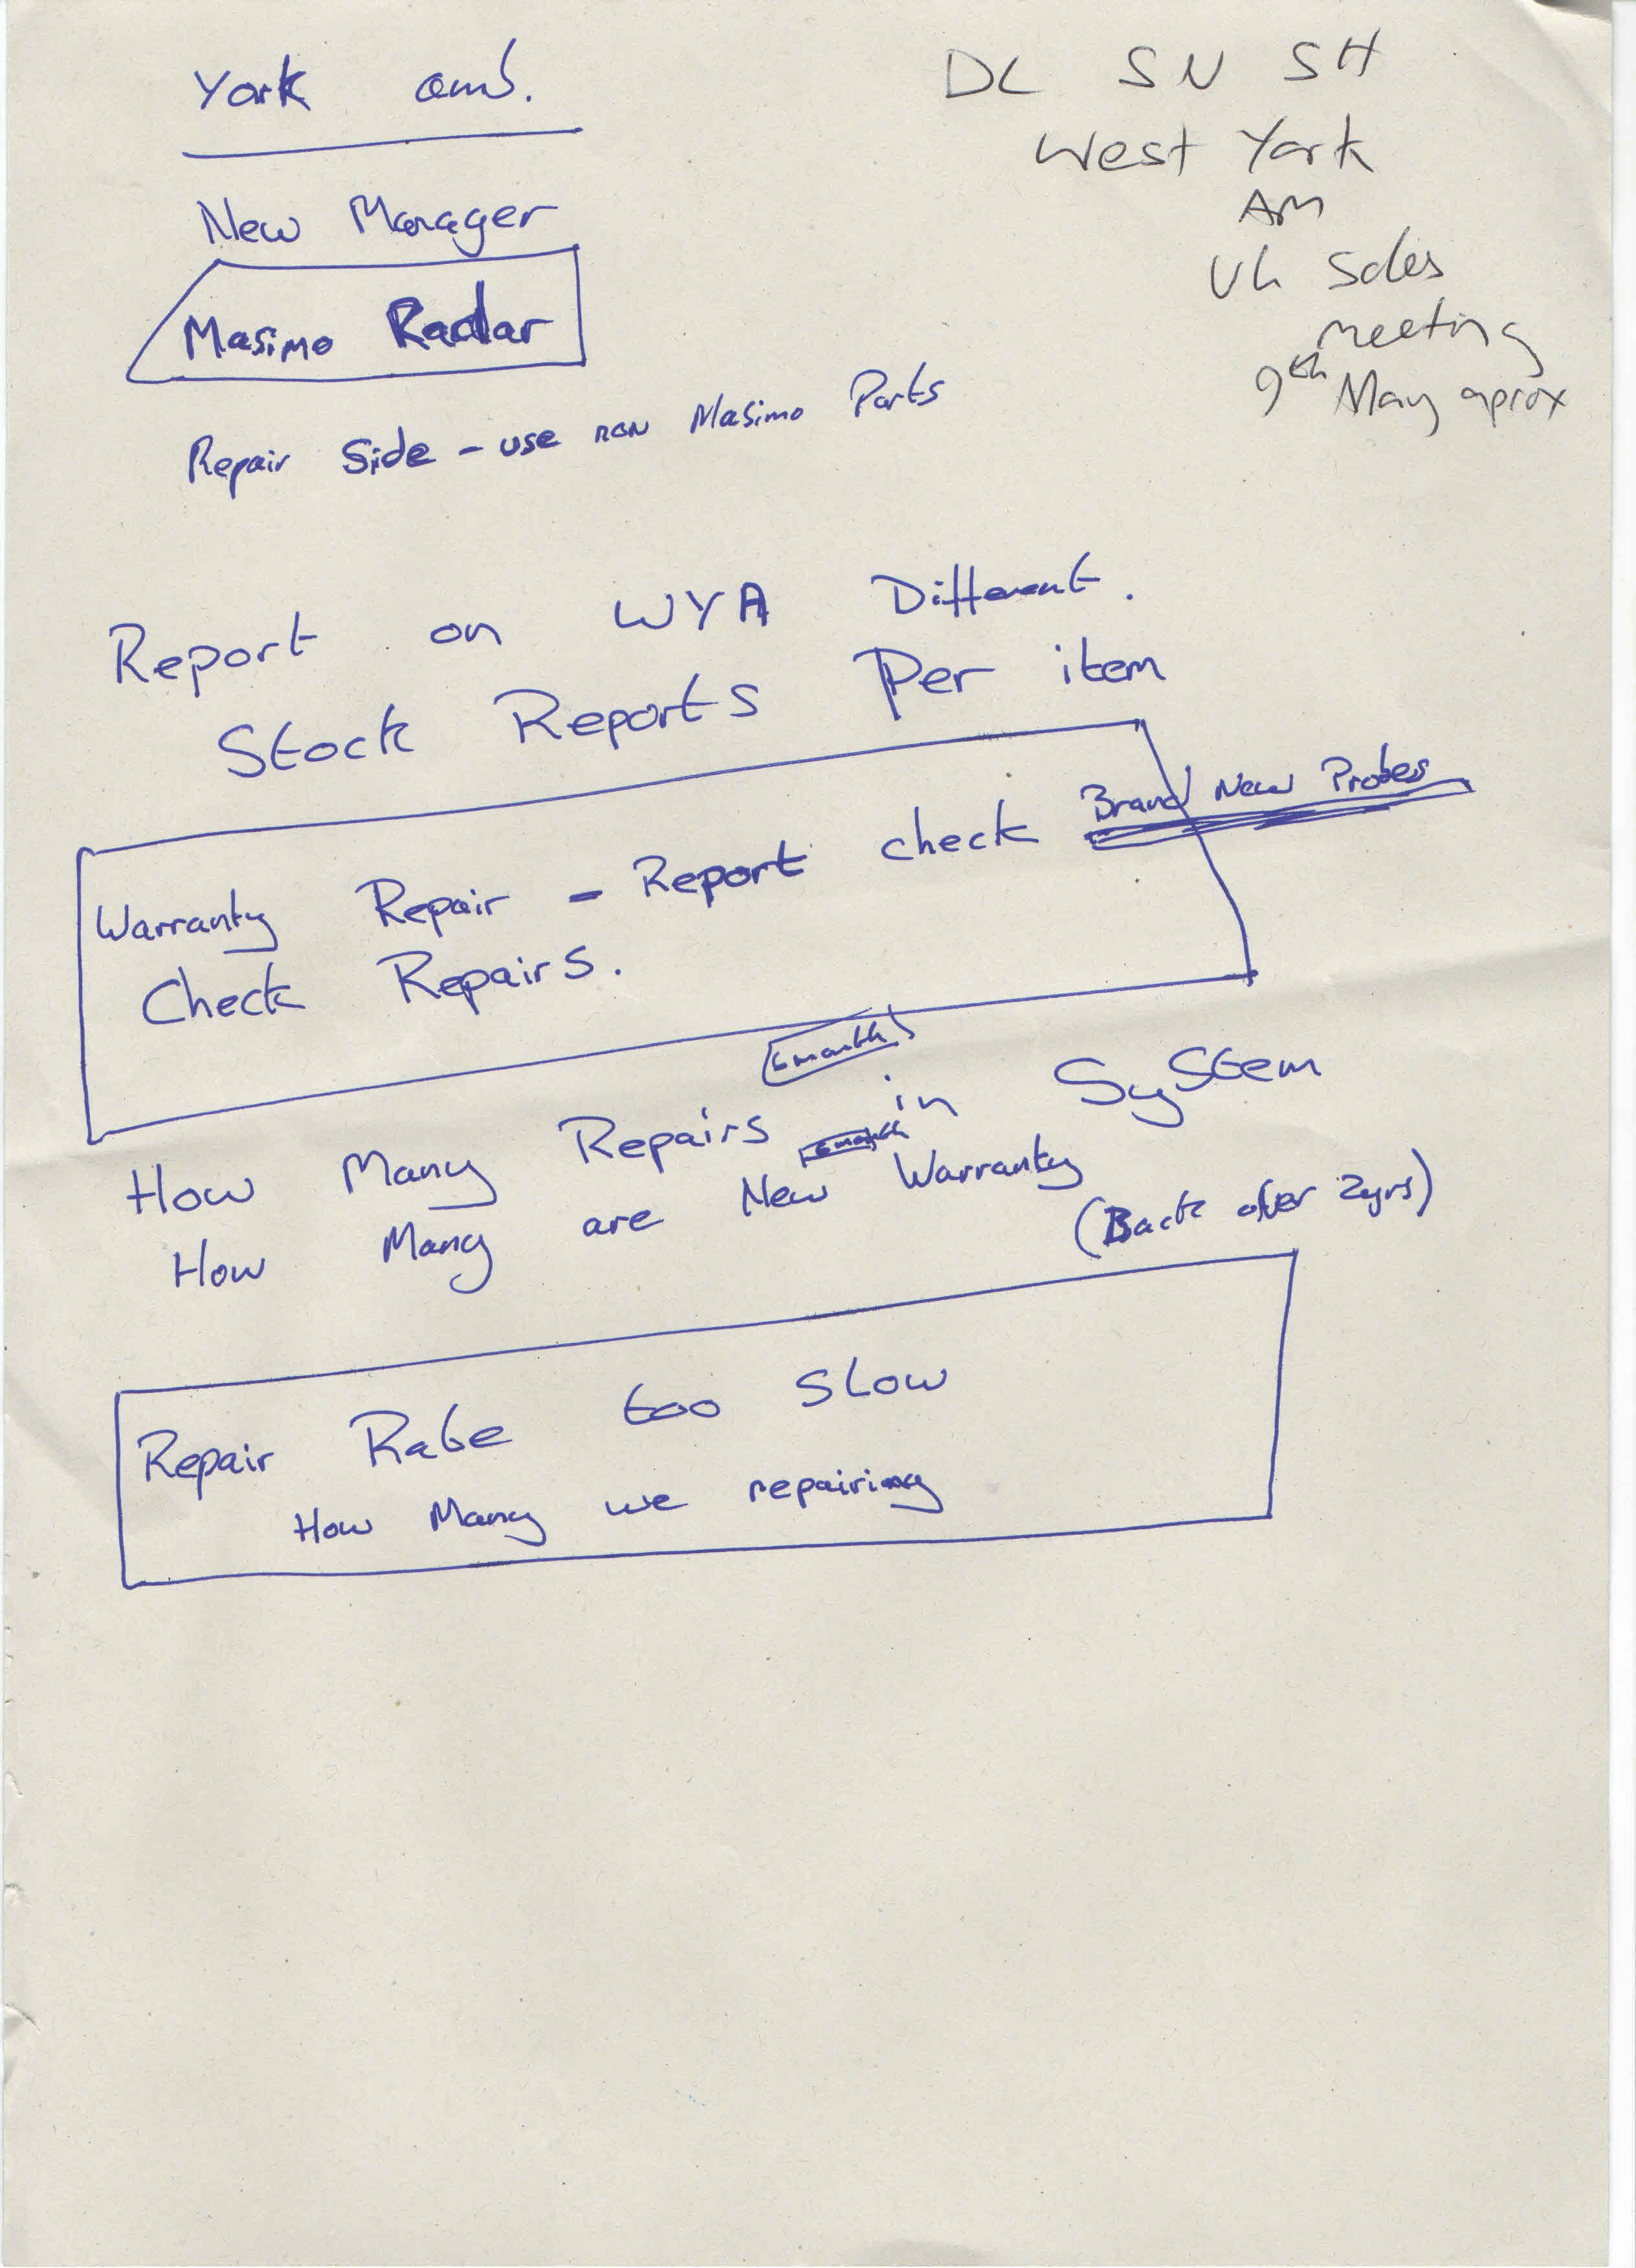 York amb.
New Manager
Masimo Radar
Repair Side - use non Masimo Parts
DL SN SH
West York
AM
Uk Sales
meeting
9th May aprox
Report on WYA Different.
Stock Reports Per item
Warranty Repair - Report check Brand New Probes
Check Repairs.
6 month
How Many Repairs in System
6 month
How Many are New Warranty
(Back after 2yrs)
Repair Rate too Slow
How Many we repairing